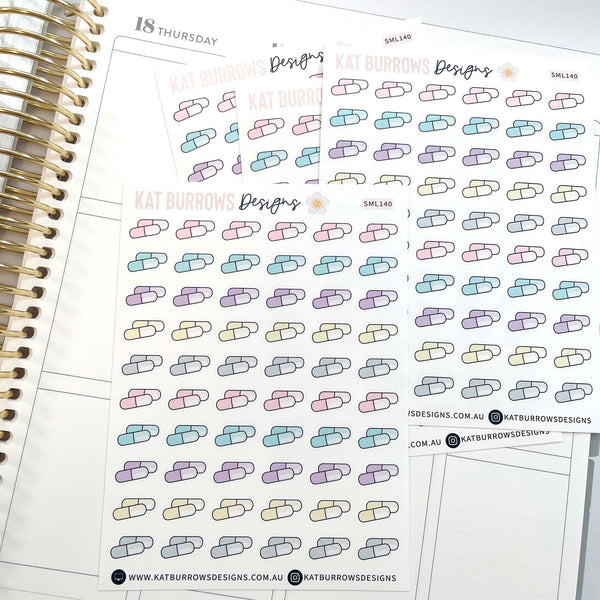 18 THURSDAY
KAT BURROWS
KAT BURROWS
SML140
KAT BURROWS Designs
SML140
KAT BURROWS Designs
SML140
WWW.KATBURROWSDESIGNS.COM.AU KATBURROWSDESIGNS
SDESIGNS.COM.AU KATBURROWSDESIGNS
.COM.AU KATBURROWSDESIGNS